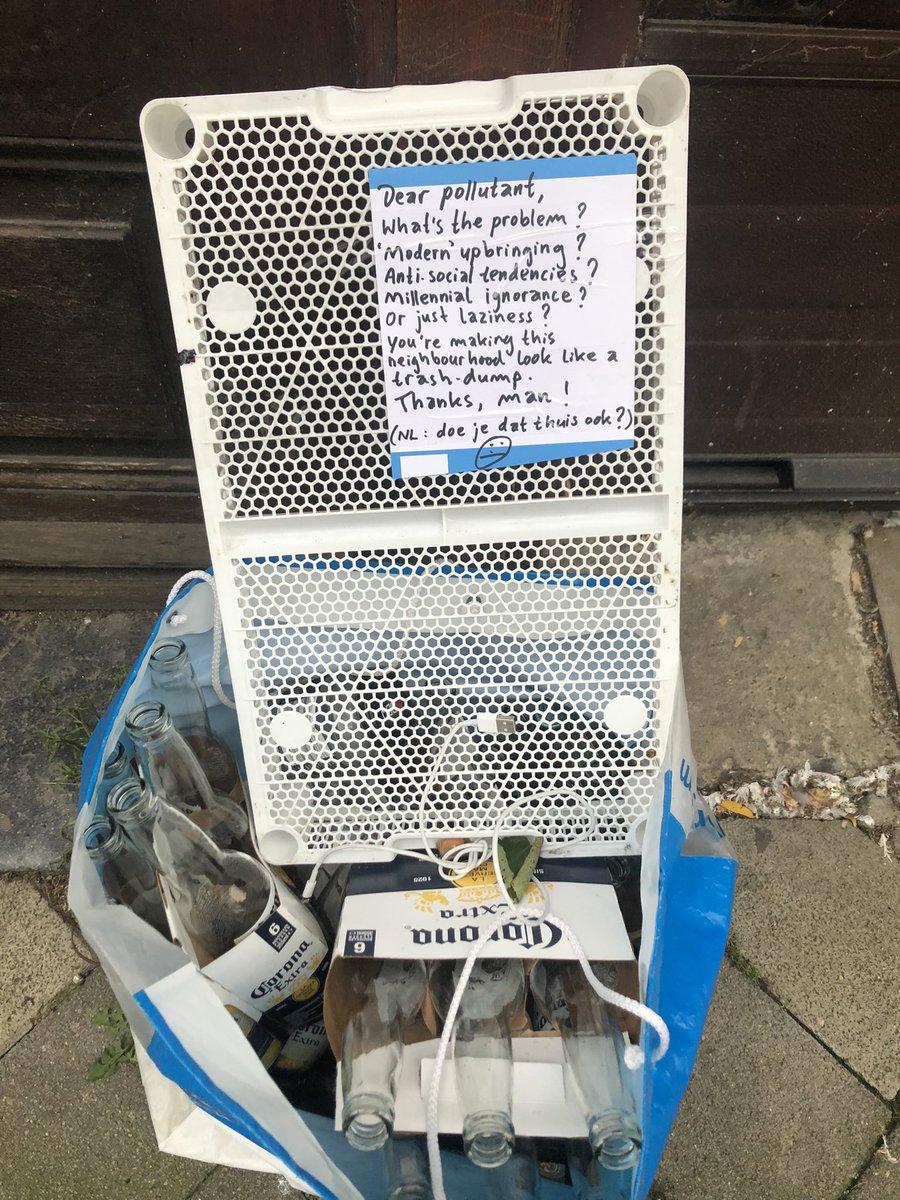 Dear pollutant,
What's the problem ?
'Modern' upbringing ?
Anti-social tendencies ?
Millennial ignorance ?
Or just laziness ?
You're making this
neighbourhood look like a
trash-dump.
Thanks, man !
(NL: doe je dat thuis ook?)
6
Corona
Extra
Corona
Extra
1925
Extra
Corona
6